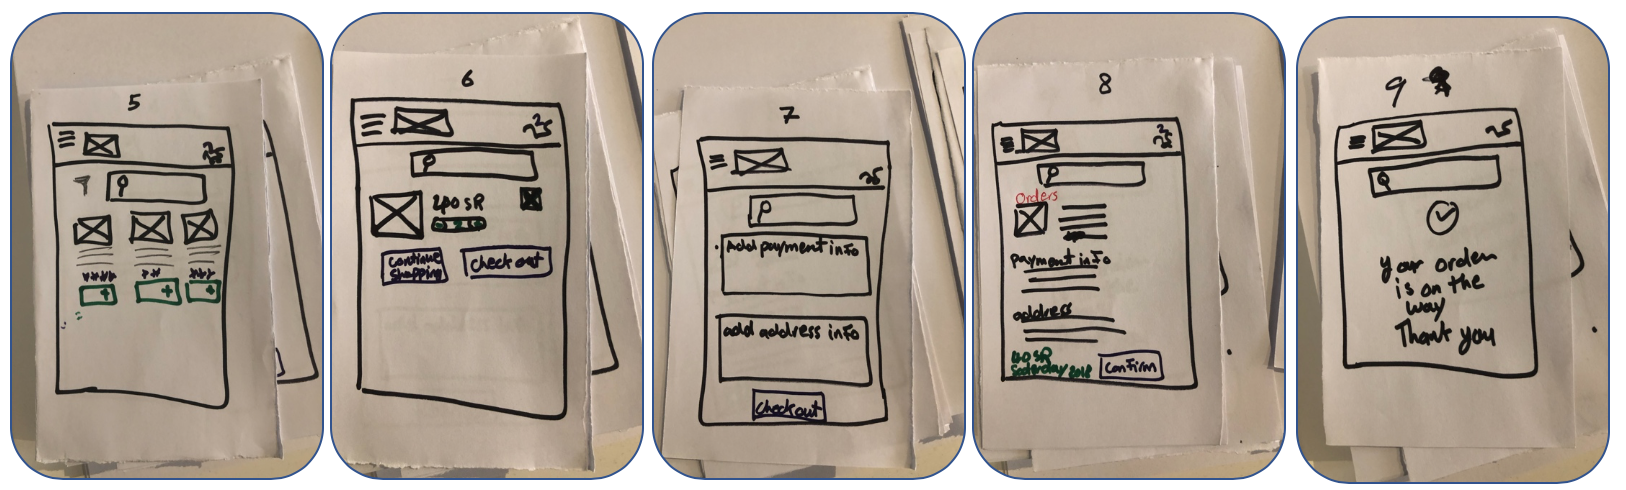 5
+
+
+
6
2
continue
shopping
check out
7
Add payment info
add address info
Checkout
8
2
Orders
payment info
address
Confirm
9
your order
is on the
way
Thank you